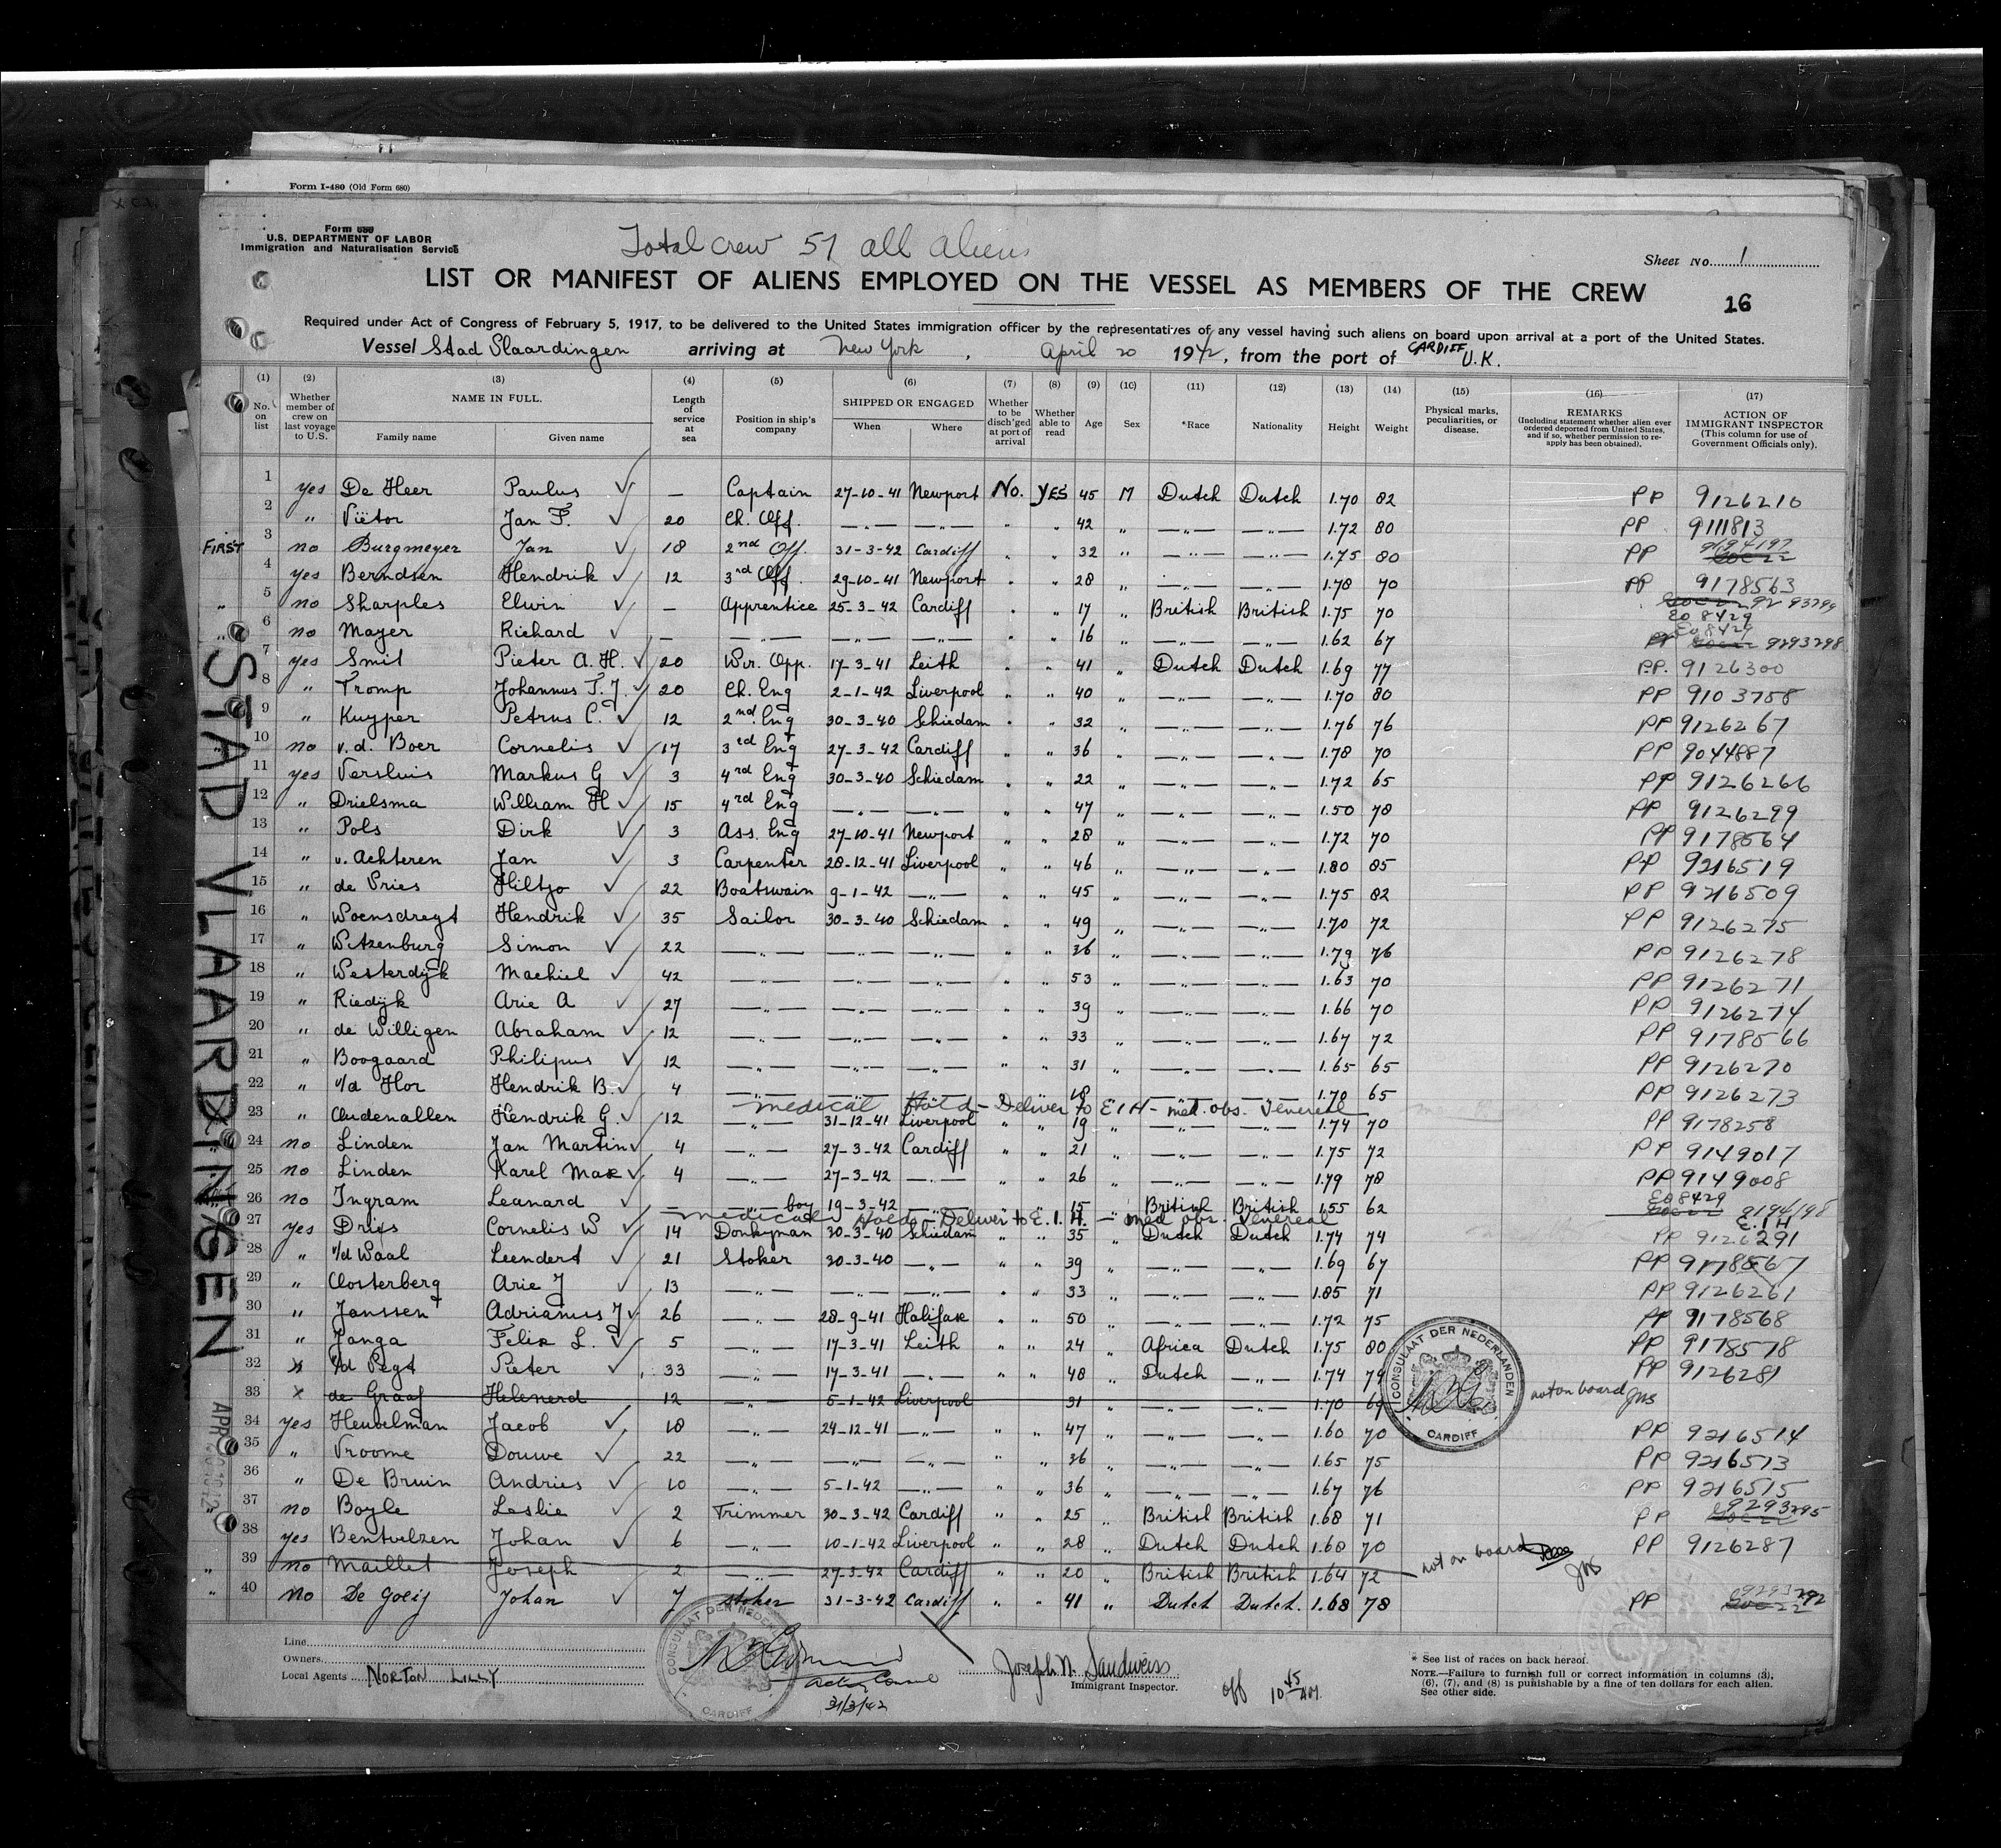 Form I-480 (Old Form 680)
Form 680
U.S. DEPARTMENT OF LABOR
Immigration and Naturalisation Service
Total crew 57 all aliens
Sheet No. 1
LIST OR MANIFEST OF ALIENS EMPLOYED ON THE VESSEL AS MEMBERS OF THE CREW
16
Required under Act of Congress of February 5, 1917, to be delivered to the United States immigration officer by the representatives of any vessel having such aliens on board upon arrival at a port of the United States.
Vessel Stad Vlaardingen arriving at New York, April 20 1942, from the port of CARDIFF U.K.
(1) No. on list (2) Whether member of crew on last voyage to U.S. (3) NAME IN FULL. Family name Given name (4) Length of service at sea (5) Position in ship's company (6) SHIPPED OR ENGAGED When Where (7) Whether to be disch'ged at port of arrival (8) Whether able to read (9) Age (10) Sex (11) *Race (12) Nationality (13) Height (14) Weight (15) Physical marks, peculiarities, or disease. (16) REMARKS (Including statement whether alien ever ordered deported from United States, and if so, whether permission to re-apply has been obtained). (17) ACTION OF IMMIGRANT INSPECTOR (This column for use of Government Officials only).
1 yes De Heer Paulus ✓ — Captain 27-10-41 Newport No. yes 45 M Dutch Dutch 1.70 82 PP 9126210
2 " Viëtor Jan F. ✓ 20 Ch. Off. —"— —"— " " 42 " —"— —"— 1.72 80 PP 9111813
FIRST 3 no Burgmeyer Jan ✓ 18 2nd Off. 31-3-42 Cardiff " " 32 " —"— —"— 1.75 80 PP 9194197
4 yes Berndsen Hendrik ✓ 12 3rd Off. 29-10-41 Newport " " 28 " —"— —"— 1.78 70 PP 9178563
" 5 no Sharples Elwin ✓ — Apprentice 25-3-42 Cardiff " " 17 " British British 1.75 70 9293299 Eo 8429
" 6 no Mayer Richard ✓ — —"— —"— —"— " " 16 " —"— —"— 1.62 67 Eo 8429 PP 9293298
7 yes Smit Pieter A. H. ✓ 20 Wir. Opp. 17-3-41 Leith " " 41 " Dutch Dutch 1.69 77 PP. 9126300
8 " Tromp Johannus T. J. ✓ 20 Ch. Eng 2-1-42 Liverpool " " 40 " —"— —"— 1.70 80 PP 9103788
9 " Kuyper Petrus C. ✓ 12 2nd Eng 30-3-40 Schiedam " " 32 " —"— —"— 1.76 76 PP 9126267
10 no v.d. Boer Cornelis ✓ 17 3rd Eng 27-3-42 Cardiff " " 36 " —"— —"— 1.78 70 PP 9044887
11 yes Versluis Markus G ✓ 3 4rd Eng 30-3-40 Schiedam " " 22 " —"— —"— 1.72 65 PP 9126266
12 " Drielsma William H ✓ 15 4rd Eng —"— —"— " " 47 " —"— —"— 1.50 78 PP 9126299
13 " Pols Dirk ✓ 3 Ass. Eng 27-10-41 Newport " " 28 " —"— —"— 1.72 70 PP 9178564
14 " v. Achteren Jan ✓ 3 Carpenter 28-12-41 Liverpool " " 46 " —"— —"— 1.80 85 PP 9216519
15 " de Vries Hiltjo ✓ 22 Boatswain 9-1-42 —"— " " 45 " —"— —"— 1.75 82 PP 9216509
16 " Woensdregt Hendrik ✓ 35 Sailor 30-3-40 Schiedam " " 49 " —"— —"— 1.70 72 PP 9126275
17 " Witzenburg Simon ✓ 22 —"— —"— —"— " " 36 " —"— —"— 1.79 76 PP 9126278
18 " Westerdijk Machiel ✓ 42 —"— —"— —"— " " 53 " —"— —"— 1.63 70 PP 9126271
19 " Riedijk Arie A ✓ 27 —"— —"— —"— " " 39 " —"— —"— 1.66 70 PP 9126274
20 " de Willigen Abraham ✓ 12 —"— —"— —"— " " 33 " —"— —"— 1.67 72 PP 9178566
21 " Boogaard Philipus ✓ 12 —"— —"— —"— " " 31 " —"— —"— 1.65 65 PP 9126270
22 " v/d Hor Hendrik B. ✓ 4 —"— —"— —"— " " 18 " —"— —"— 1.70 65 PP 9126273
medical Hold - Deliver to E I H - med. obs. Venereal
23 " Oudenallen Hendrik G. ✓ 12 —"— 31-12-41 Liverpool " " 19 " —"— —"— 1.74 70 PP 9178258
24 no Linden Jan Martin ✓ 4 —"— 27-3-42 Cardiff " " 21 " —"— —"— 1.75 72 PP 9149017
25 no Linden Karel Max ✓ 4 —"— 27-3-42 —"— " " 26 " —"— —"— 1.79 78 PP 9149008
26 no Ingram Leonard ✓ — —"— boy 19-3-42 —"— " " 15 " British British 1.55 62 Eo 8429 9194198
medical Hold - Deliver to E. I. H. - med obs. Venereal E I H
27 yes Dries Cornelis W ✓ 14 Donkyman 30-3-40 Schiedam " " 35 " Dutch Dutch 1.74 74 PP 9126291
28 " v/d Waal Leendert ✓ 21 Stoker 30-3-40 —"— " " 39 " —"— —"— 1.69 67 PP 9178567
29 " Oosterberg Arie J ✓ 13 —"— —"— —"— " " 33 " —"— —"— 1.85 71 PP 9126261
30 " Janssen Adrianus J ✓ 26 —"— 28-9-41 Halifax " " 50 " —"— —"— 1.72 75 PP 9178568
31 " Janga Felix L. ✓ 5 —"— 17-3-41 Leith " " 24 " Africa Dutch 1.75 80 PP 9178578
32 x v/d Pegt Pieter ✓ 33 —"— 17-3-41 —"— " " 48 " Dutch —"— 1.74 79 PP 9126281
33 x de Graaf Helenerd 12 —"— 5-1-42 Liverpool 31 —"— —"— 1.70 69 not on board JNS
34 yes Heuvelman Jacob ✓ 18 —"— 24-12-41 —"— " " 47 " —"— —"— 1.60 70 PP 9216514
35 " Vroome Douwe ✓ 22 —"— —"— —"— " " 36 " —"— —"— 1.65 75 PP 9216513
36 " De Bruin Andries ✓ 10 —"— 5-1-42 —"— " " 36 " —"— —"— 1.67 76 PP 9216515
" 37 no Boyle Leslie ✓ 2 Trimmer 30-3-42 Cardiff " " 25 " British British 1.68 71 PP 9293295
38 yes Bentvelzen Johan ✓ 6 —"— 10-1-42 Liverpool " " 28 " Dutch Dutch 1.68 70 PP 9126287
" 39 no Maillet Joseph 2 —"— 27-3-42 Cardiff " " 20 " British British 1.64 72 not on board JNS
" 40 No De Goeij Johan ✓ 7 stoker 31-3-42 Cardiff " " 41 " Dutch Dutch. 1.68 78 PP 9293292
STAD VLAARDINGEN
APR 20 1942
CONSULAAT DER NEDERLANDEN
CARDIFF
Line
Owners
Local Agents NORTON LILLY
CONSULAAT DER NEDERLANDEN
CARDIFF
Acting Consul
31/3/42
Joseph N. Sandweiss
Immigrant Inspector.
off 10 45 AM
* See list of races on back hereof.
NOTE.—Failure to furnish full or correct information in columns (3), (6), (7), and (8) is punishable by a fine of ten dollars for each alien. See other side.